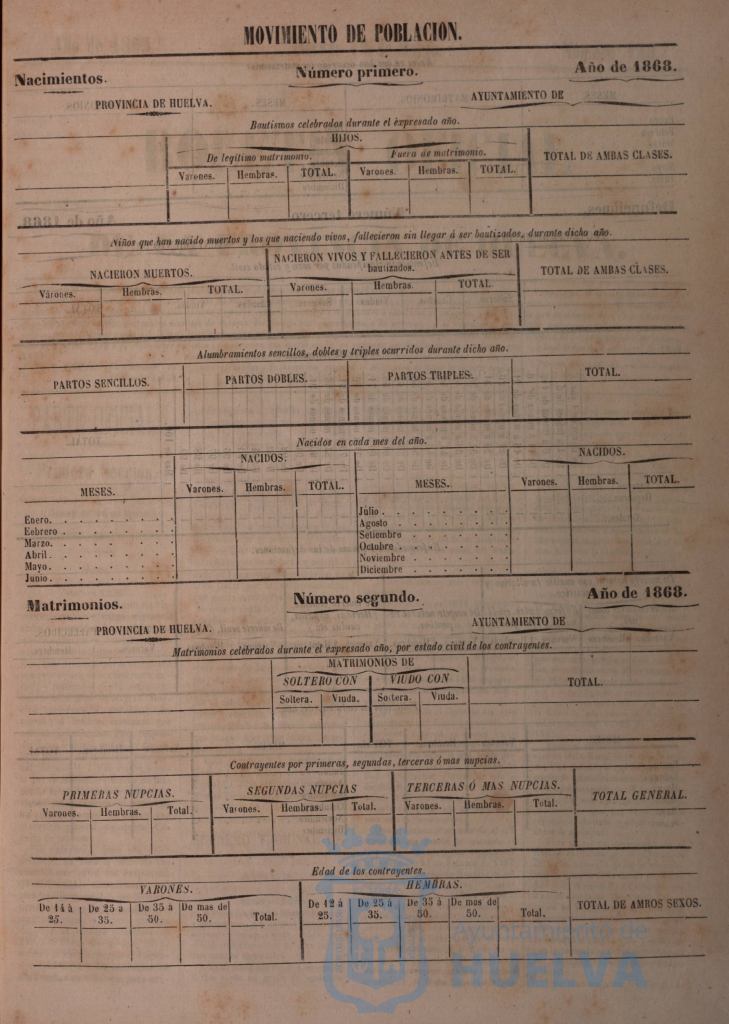 MOVIMIENTO DE POBLACION.
Nacimientos. Número primero. Año de 1868.
PROVINCIA DE HUELVA. AYUNTAMIENTO DE
Bautismos celebrados durante el èxpresado año.
HIJOS.
De legítimo matrimonio. Fuera de matrimonio. TOTAL DE AMBAS CLASES.
Varones. Hembras. TOTAL. Varones. Hembras. TOTAL.
Niños que han nacido muertos y los que naciendo vivos, fallecieron sin llegar á ser bautizados, durante dicho año.
NACIERON MUERTOS. NACIERON VIVOS Y FALLECIERON ANTES DE SER bautizados. TOTAL DE AMBAS CLASES.
Varones. Hembras. TOTAL. Varones. Hembras. TOTAL.
Alumbramientos sencillos, dobles y triples ocurridos durante dicho año.
PARTOS SENCILLOS. PARTOS DOBLES. PARTOS TRIPLES. TOTAL.
Nacidos en cada mes del año.
NACIDOS. NACIDOS.
MESES. Varones. Hembras. TOTAL. MESES. Varones. Hembras. TOTAL.
Enero. Júlio
Eebrero Agosto
Marzo. Setiembre
Abril. Octubre
Mayo. Noviembre
Junio. Diciembre
Matrimonios. Número segundo. Año de 1868.
PROVINCIA DE HUELVA. AYUNTAMIENTO DE
Matrimonios celebrados durante el expresado año, por estado civil de los contrayentes.
MATRIMONIOS DE
SOLTERO CON VIUDO CON TOTAL.
Soltera. Viuda. Soltera. Viuda.
Contrayentes por primeras, segundas, terceras ó mas nupcias.
PRIMERAS NUPCIAS. SEGUNDAS NUPCIAS TERCERAS Ó MAS NUPCIAS. TOTAL GENERAL.
Varones. Hembras. Total. Varones. Hembras. Total. Varones. Hembras. Total.
Edad de los contrayentes.
VARONES. HEMBRAS.
De 14 á 25. De 25 a 35. De 35 á 50. De mas de 50. Total. De 12 á 25. De 25 á 35. De 35 á 50. De mas de 50. Total. TOTAL DE AMBOS SEXOS.
Ayuntamiento de
HUELVA